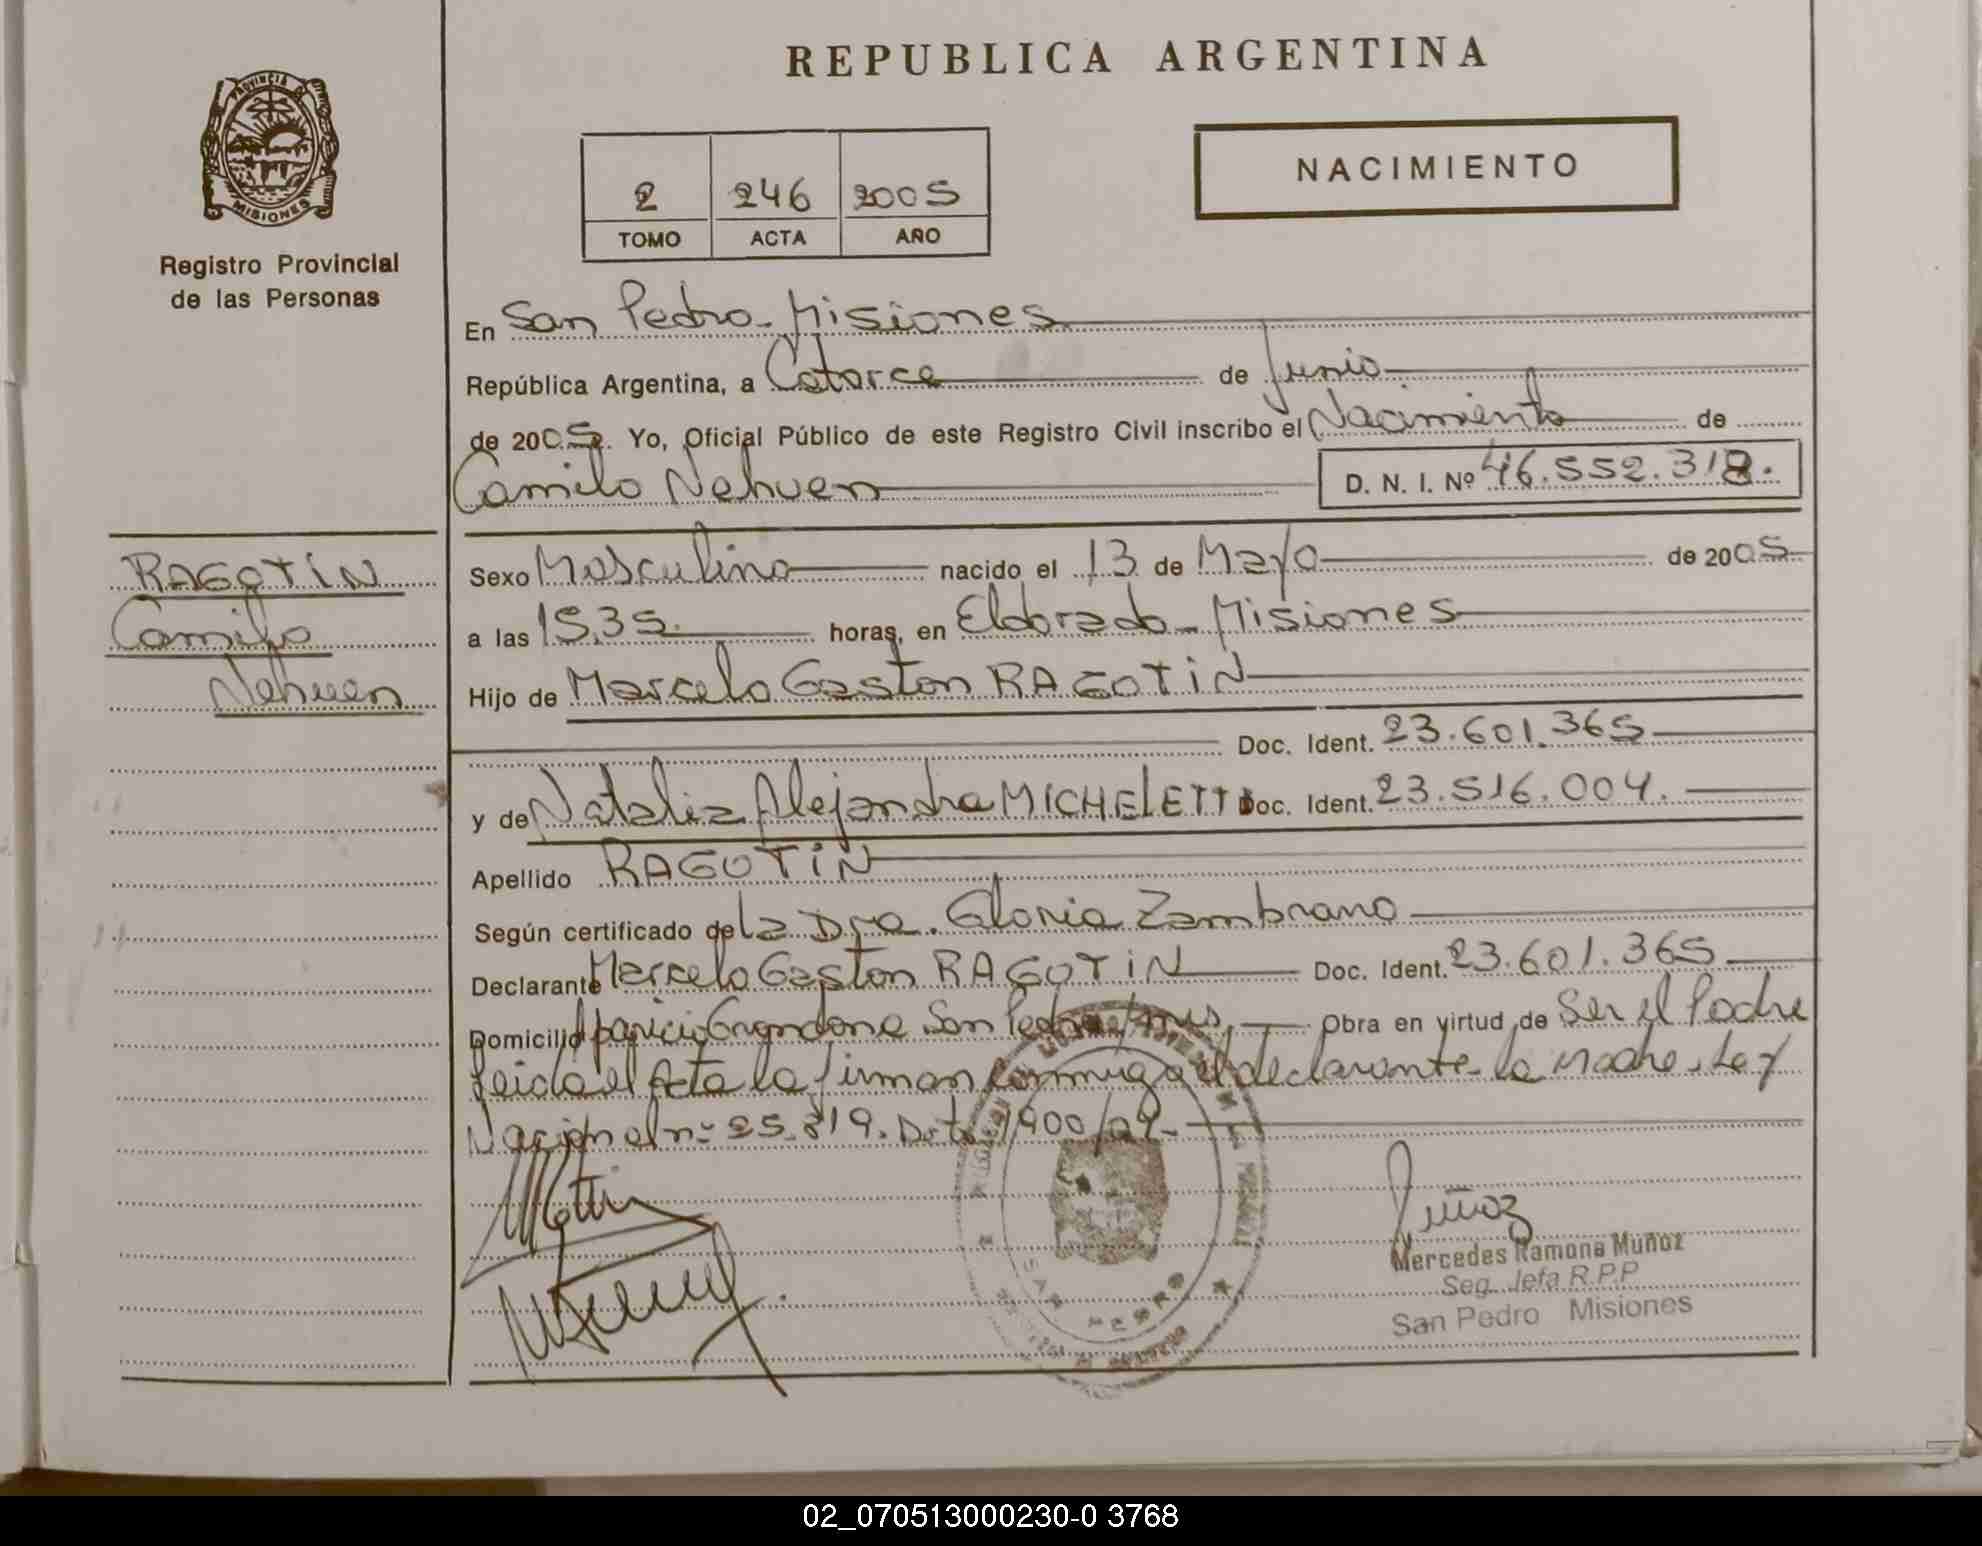 REPUBLICA ARGENTINA
PROVINCIA DE
MISIONES
Registro Provincial
de las Personas
2 246 2005
TOMO ACTA AÑO
NACIMIENTO
En San Pedro - Misiones
República Argentina, a Catorce de Junio
de 2005. Yo, Oficial Público de este Registro Civil inscribo el Nacimiento de
Camilo Nehuen D. N. I. Nº 46.552.318.
RAGOTIN
Camilo
Nehuen
Sexo Masculino nacido el 13 de Mayo de 2005
a las 15,35. horas, en Eldorado - Misiones
Hijo de Marcelo Gaston RAGOTIN
Doc. Ident. 23.601.365
y de Natalia Alejandra MICHELETTI Doc. Ident. 23.516.004.
Apellido RAGOTIN
Según certificado de la Dra. Gloria Zambrano
Declarante Marcelo Gaston RAGOTIN Doc. Ident. 23.601.365
Domicilio Aparicio Grondona San Pedro Mnes, Obra en virtud de Ser el Padre
Leida el Acta la firman conmigo el declarante - la madre - Ley
Nacional nº 25.819. Dto 1900/04 -
Muñoz
Mercedes Ramona Muñoz
Seg. Jefa R.P.P
San Pedro Misiones
SAN PEDRO
02_070513000230-0 3768